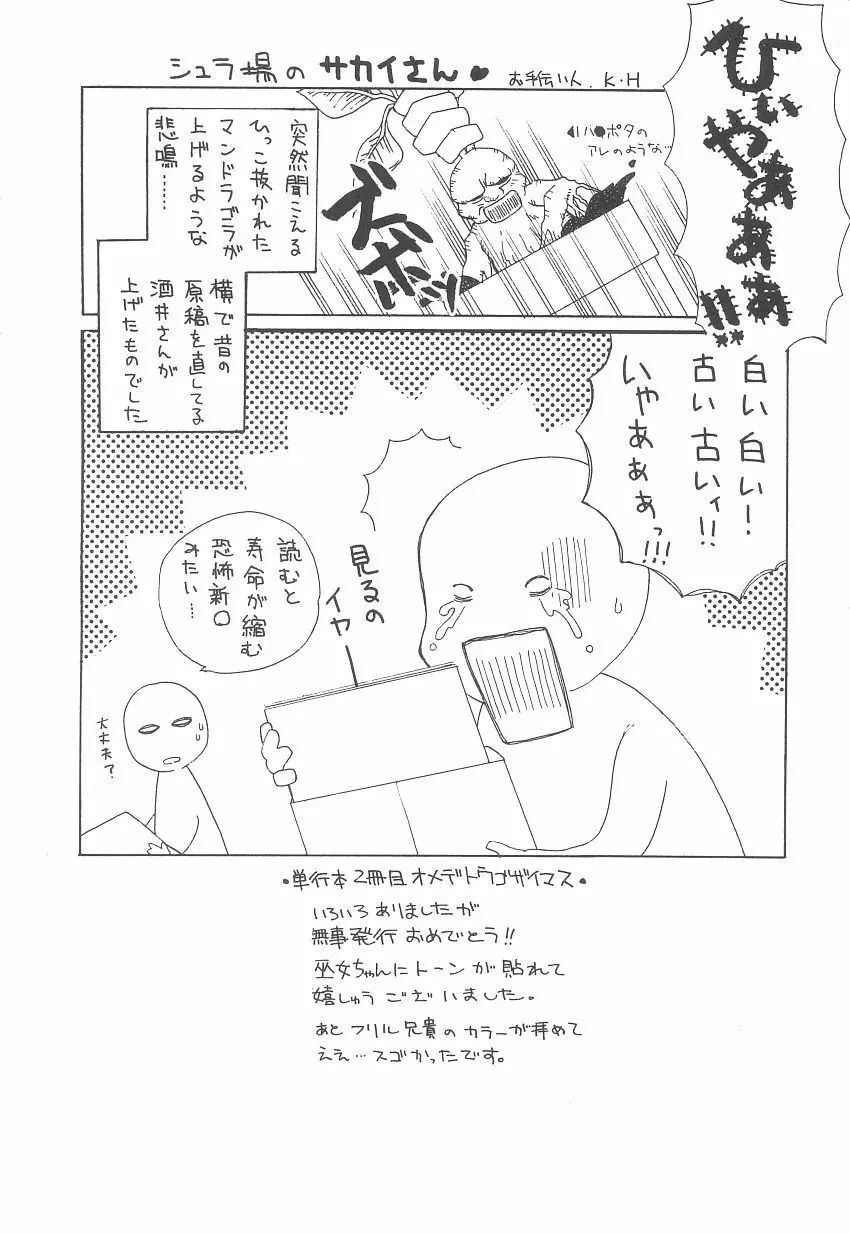 シュラ場の サカイさん♥
お手伝い人 K・H
ひぃやぁぁぁ!!
突然聞こえる
ひっこ抜かれた
マンドラゴラが
上げるような
悲鳴……
ズボッ
ハリ●ポタの
アレのような
横で昔の
原稿を直してる
酒井さんが
上げたものでした
白い 白い!
古い 古いィ!!
いやあぁぁっ!!!
見るの
イヤー
読むと
寿命が縮む
恐怖新〇
みたい…
大丈夫?
・単行本2冊目オメデトウゴザイマス・
いろいろ ありましたが
無事発行 おめでとう!!
巫女ちゃんにトーンが貼れて
嬉しゅう ございました。
あと フリル兄貴の カラーが拝めて
ええ…スゴかったです。